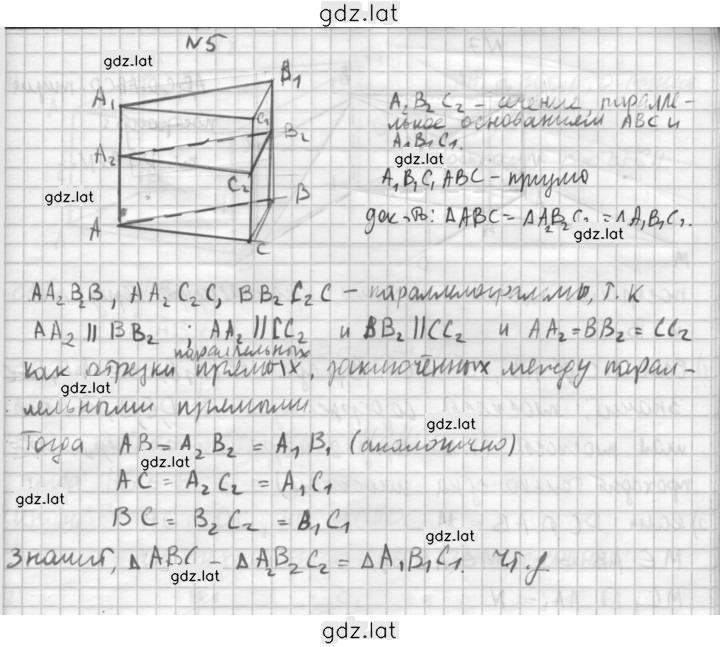 gdz.lat
N5
gdz.lat
A₁ B₁ C₁
A₂ B₂ C₂
gdz.lat
A B C
A₁B₂C₂ – сечение, паралле-
льное основаниям ABC и
A₁B₁C₁.
gdz.lat
A₁B₁C₁ABC – призма
док-ть: ΔABC = ΔA₂B₂C₂ = ΔA₁B₁C₁.
gdz.lat
AA₂B₂B, AA₂C₂C, BB₂C₂C – параллелограммы, т.к
AA₂ || BB₂ ; AA₂ || CC₂ и BB₂ || CC₂ и AA₂ = BB₂ = CC₂
параллельных
как отрезки прямых, заключённых между парал-
gdz.lat
лельными прямыми
gdz.lat
Тогда AB = A₂B₂ = A₁B₁ (аналогично)
gdz.lat
AC = A₂C₂ = A₁C₁
gdz.lat
BC = B₂C₂ = B₁C₁
gdz.lat
Значит, ΔABC – ΔA₂B₂C₂ = ΔA₁B₁C₁. чт.д
gdz.lat
gdz.lat